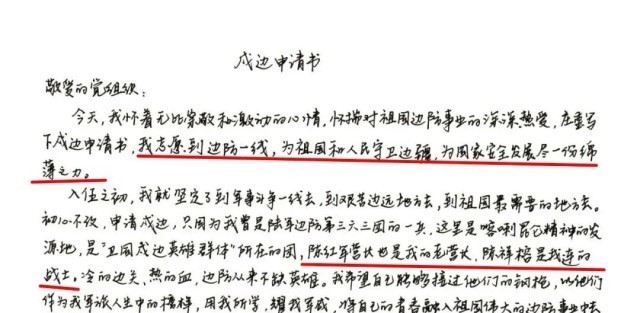 戍边申请书
敬爱的党组织：
今天，我怀着无比崇敬和激动的心情，怀揣对祖国边防事业的深深热爱，庄重写
下戍边申请书，我志愿到边防一线，为祖国和人民守卫边疆，为国家安全发展尽一份绵
薄之力。
入伍之初，我就坚定了到军事斗争一线去，到艰苦边远地方去，到祖国最需要的地方去。
初心不改，申请戍边，只因为我曾是陆军边防第三六三团的一兵，这里是喀喇昆仑精神的发
源地，是“卫国戍边英雄群体”所在的团，陈红军营长也是我的老营长，陈祥榕是我连的
战士。冷的边关，热的血，边防从来不缺英雄。我希望自己能够接过他们的钢枪，以他们
作为我军旅人生中的榜样，用我所学，耀我军威，将自己的青春融入祖国伟大的边防事业中去